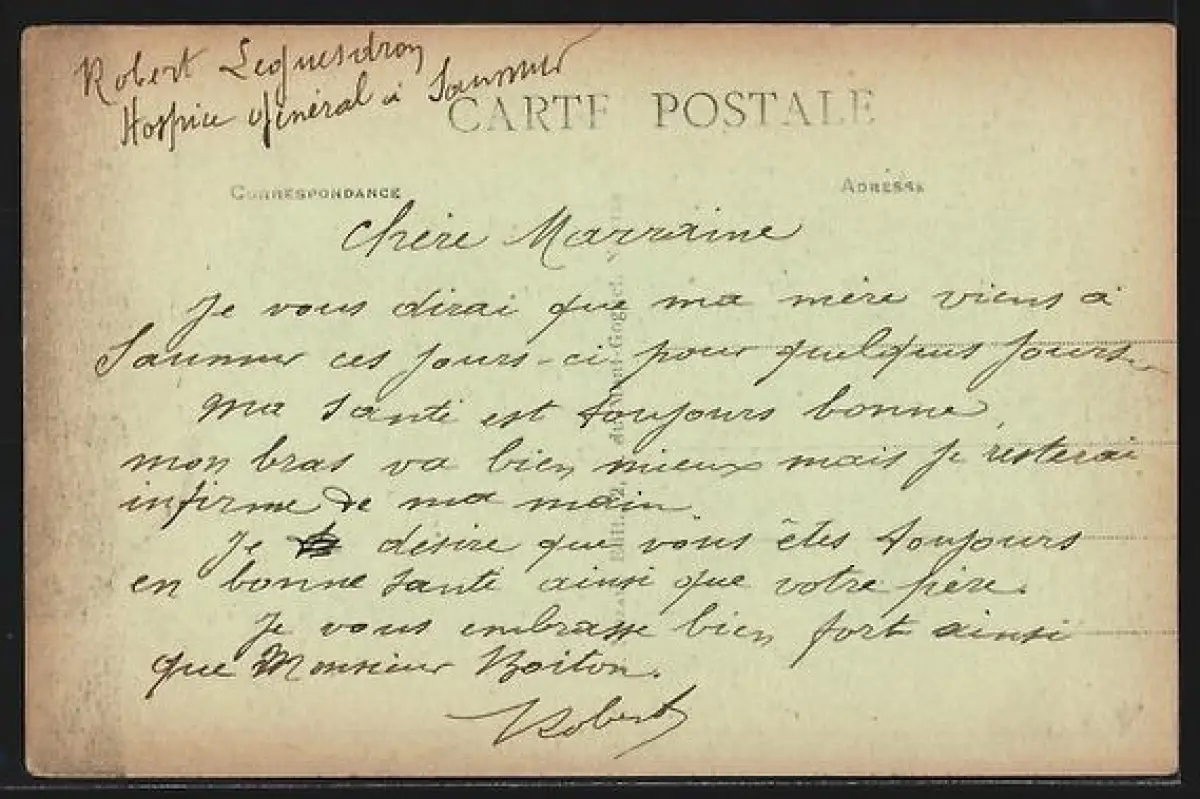 Robert Lequesdron
Hospice Général à Saumur
CARTE POSTALE
CORRESPONDANCE
ADRESSE
Chère Marraine
Je vous dirai que ma mère viens à
Saumur ces jours-ci pour quelques jours.
Ma santé est toujours bonne,
mon bras va bien mieux mais je resterai
infirme de ma main.
Je désire que vous êtes toujours
en bonne santé ainsi que votre père.
Je vous embrasse bien fort ainsi
que Monsieur Boiton.
Robert